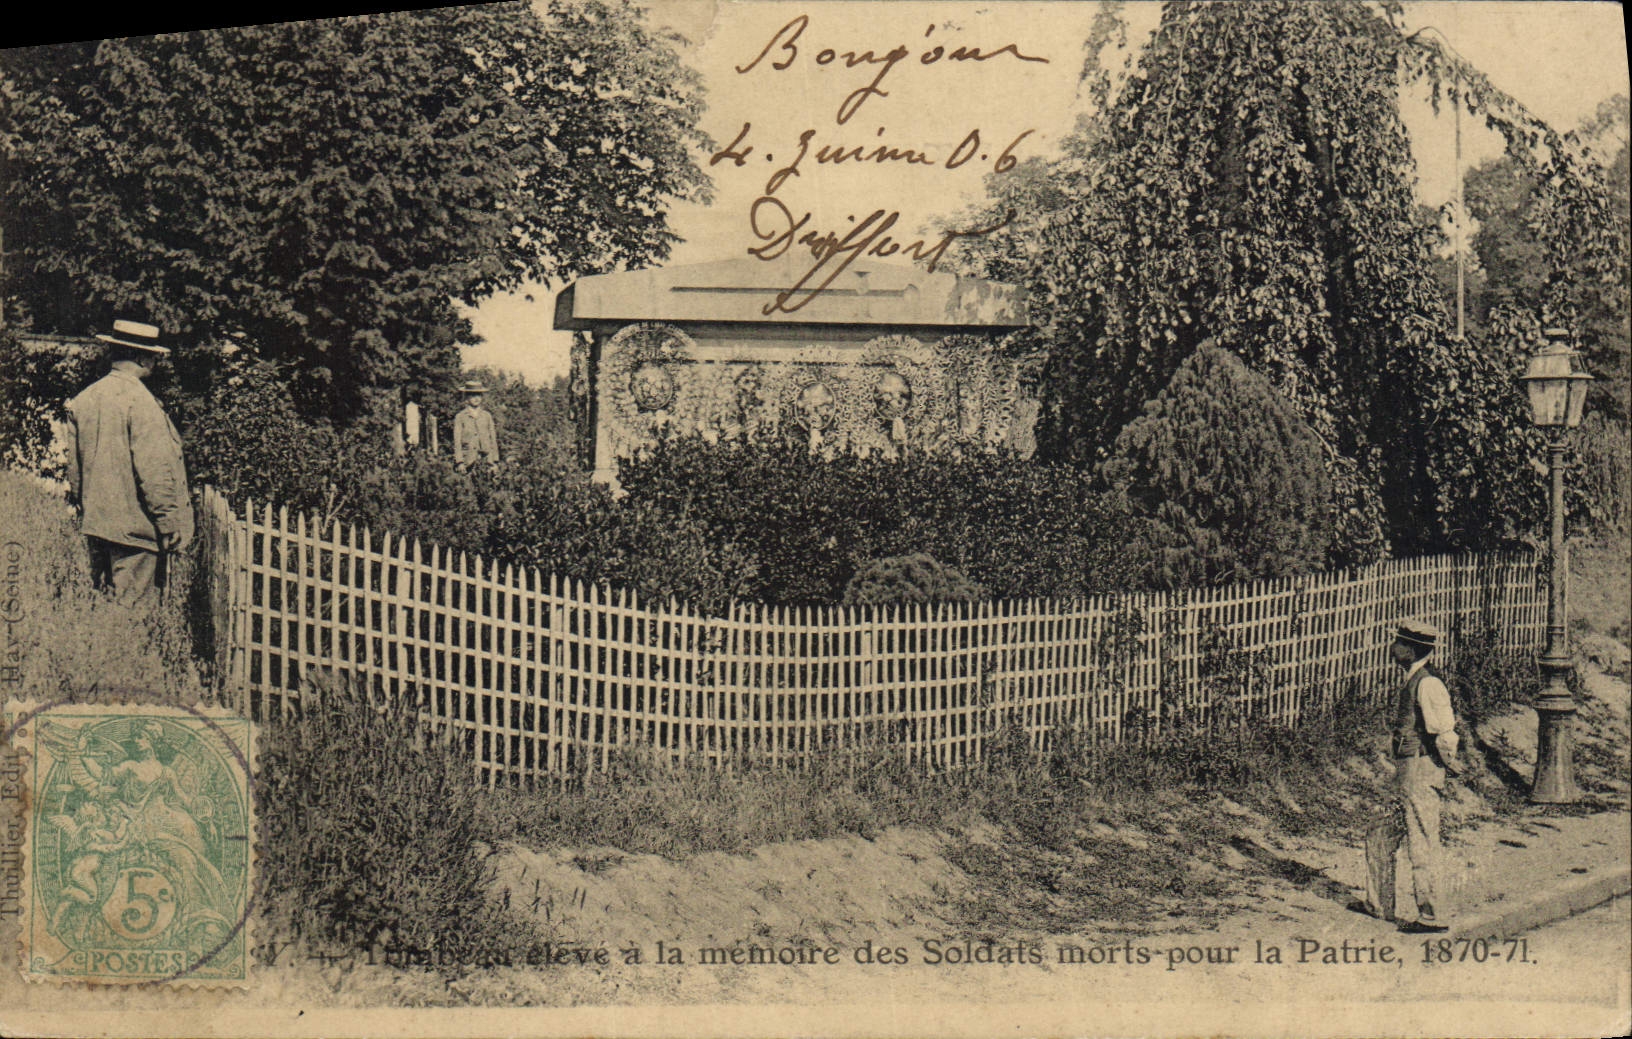 Bonjour
4. Juin 0.6
Thuillier, Edit. Hay (Seine)
5c
POSTES
Y. — Tombeau élevé à la mémoire des Soldats morts pour la Patrie, 1870-71.